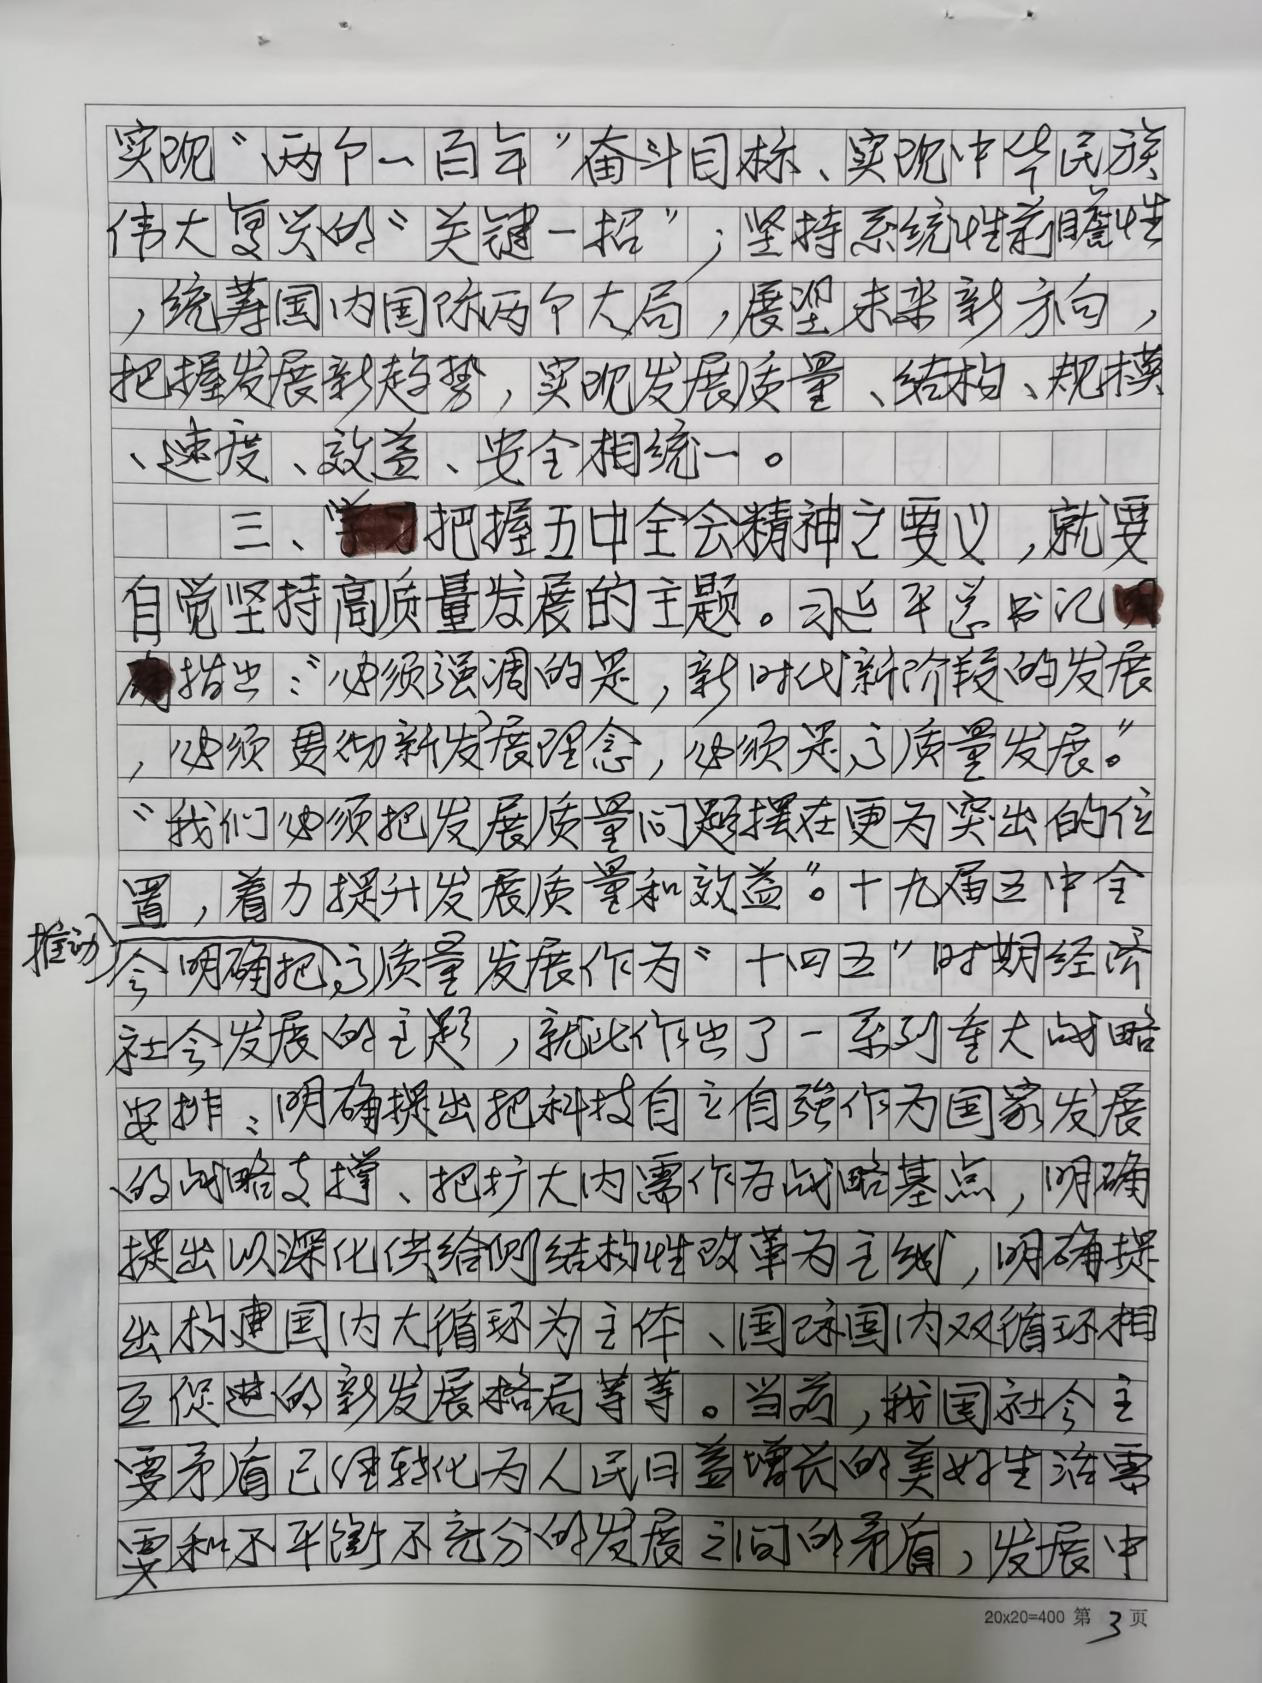 实现“两个一百年”奋斗目标、实现中华民族
伟大复兴的“关键一招”；坚持系统性前瞻性
，统筹国内国际两个大局，展望未来新方向，
把握发展新趋势，实现发展质量、结构、规模
、速度、效益、安全相统一。
三、把握五中全会精神之要义，就要
自觉坚持高质量发展的主题。习近平总书记
指出：“必须强调的是，新时代新阶段的发展
，必须贯彻新发展理念，必须是高质量发展。”
“我们必须把发展质量问题摆在更为突出的位
置，着力提升发展质量和效益”。十九届五中全
推动
会明确把高质量发展作为“十四五”时期经济
社会发展的主题，就此作出了一系列重大战略
安排：明确提出把科技自立自强作为国家发展
的战略支撑、把扩大内需作为战略基点，明确
提出以深化供给侧结构性改革为主线，明确提
出构建国内大循环为主体、国际国内双循环相
互促进的新发展格局等等。当前，我国社会主
要矛盾已经转化为人民日益增长的美好生活需
要和不平衡不充分的发展之间的矛盾，发展中
20x20=400 第3页